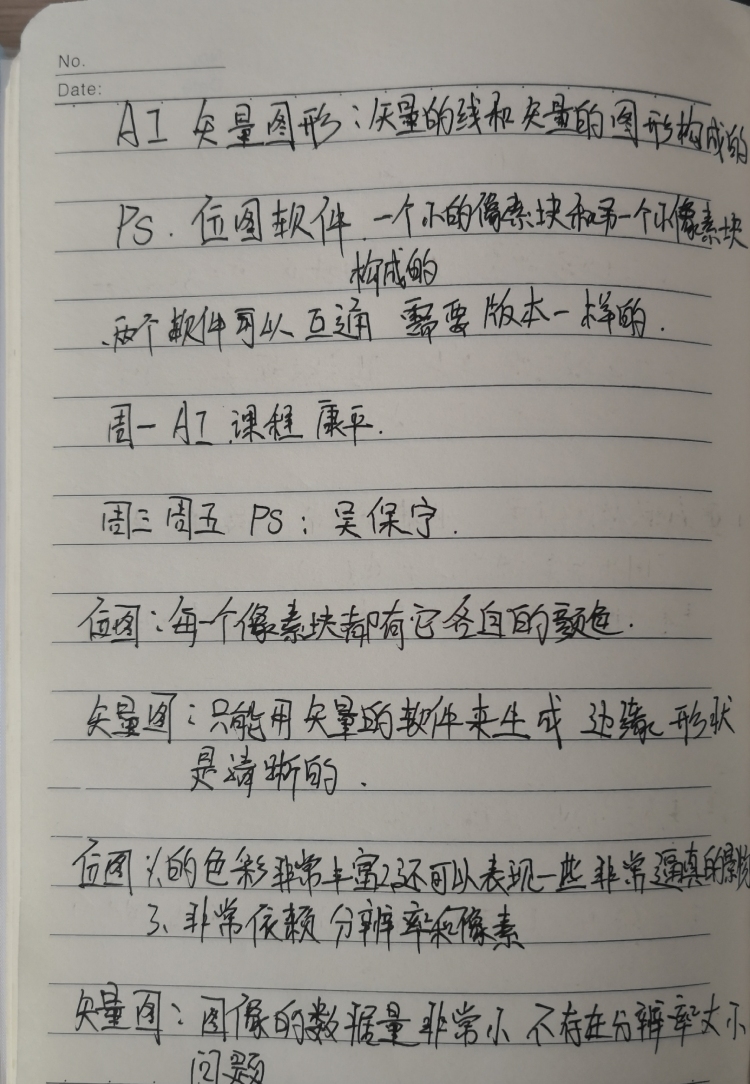 No.
Date:
AI 矢量图形：矢量的线和矢量的图形构成的
PS. 位图软件. 一个小的像素块和另一个小像素块
构成的
两个软件可以互通 需要版本一样的.
周一 AI 课程 康平.
周三周五 PS：吴保宁.
位图：每一个像素块都有它各自的颜色.
矢量图：只能用矢量的软件来生成 边缘形状
是清晰的.
位图：1.的色彩非常丰富2.还可以表现一些非常逼真的
3、非常依赖分辨率和像素
矢量图：图像的数据量非常小 不存在分辨率大小
问题